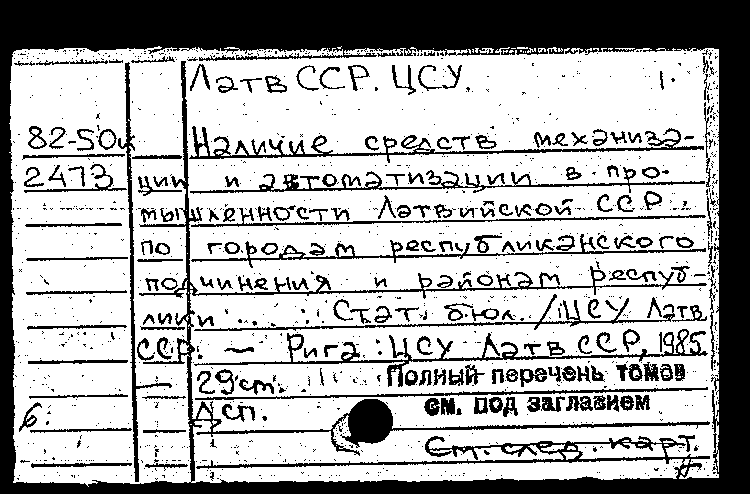 Латв ССР. ЦСУ. 1.
82-50к Наличие средств механиза-
2473 ции и автоматизации в про-
мышленности Латвийской ССР
по городам республиканского
подчинения и районам респуб-
лики ... : Стат. бюл. / ЦСУ Латв
ССР. — Рига : ЦСУ Латв ССР, 1985.
— 29 см. Полный перечень томов
б. Дсп. см. под заглавием
См. след. карт.